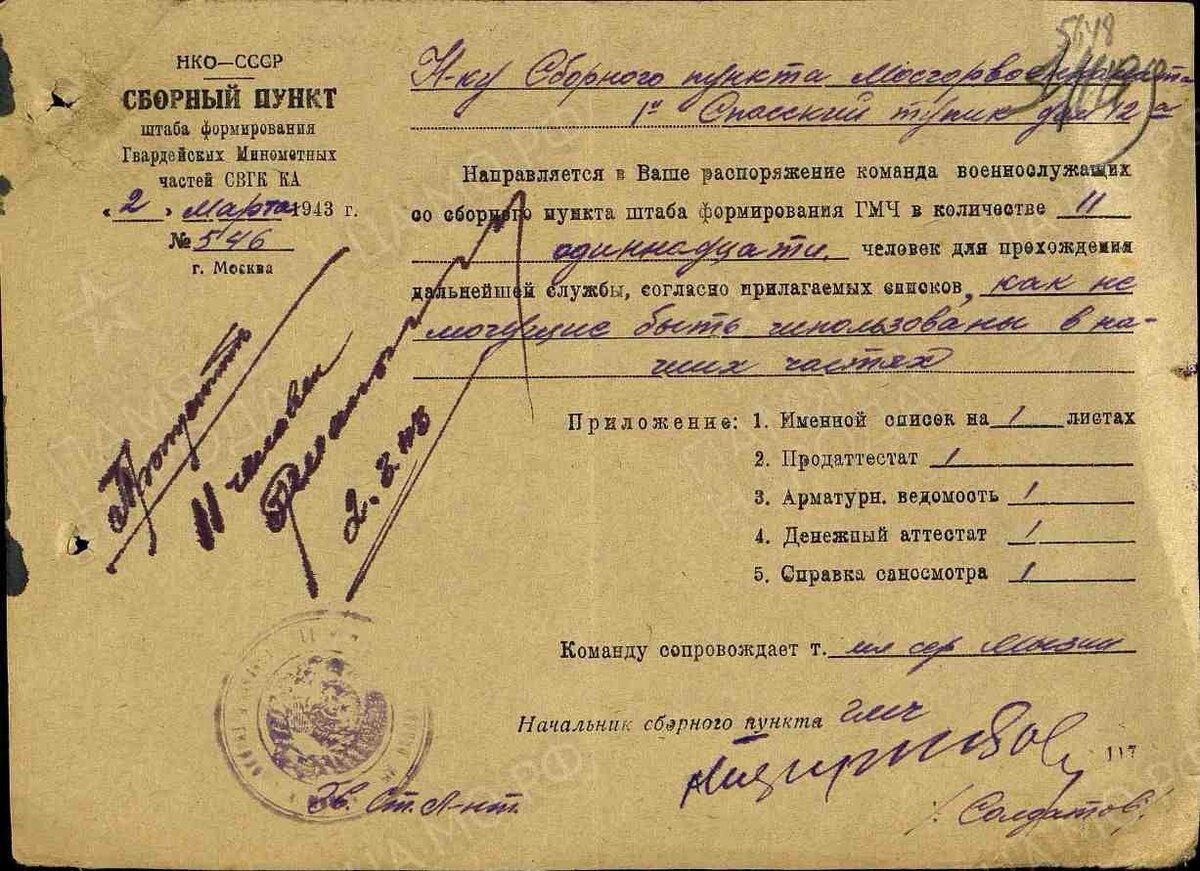 НКО—СССР
СБОРНЫЙ ПУНКТ
штаба формирования
Гвардейских Минометных
частей СВГК КА
„2“ Марта 1943 г.
№ 546
г. Москва
5648
Н-ку Сборного пункта Мосгорвоенкомата
1й Спасский тупик дом 12а
Направляется в Ваше распоряжение команда военнослужащих
со сборного пункта штаба формирования ГМЧ в количестве 11
одиннадцати, человек для прохождения
дальнейшей службы, согласно прилагаемых списков, как не
могущие быть использованы в на-
ших частях
Приложение: 1. Именной список на 1 листах
2. Продаттестат 1
3. Арматурн. ведомость 1
4. Денежный аттестат 1
5. Справка саносмотра 1
Команду сопровождает т. мл сер Мызин
Начальник сборного пункта ГМЧ
117
Гв. Ст. Л-нт.
/Солдатов/
Пропустить
11 человек
2.3.43